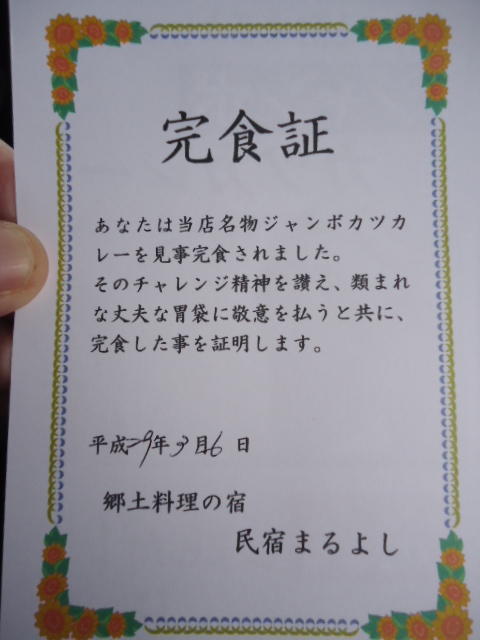 完食証
あなたは当店名物ジャンボカツカ
レーを見事完食されました。
そのチャレンジ精神を讃え、類まれ
な丈夫な胃袋に敬意を払うと共に、
完食した事を証明します。
平成29年3月6日
郷土料理の宿
民宿まるよし